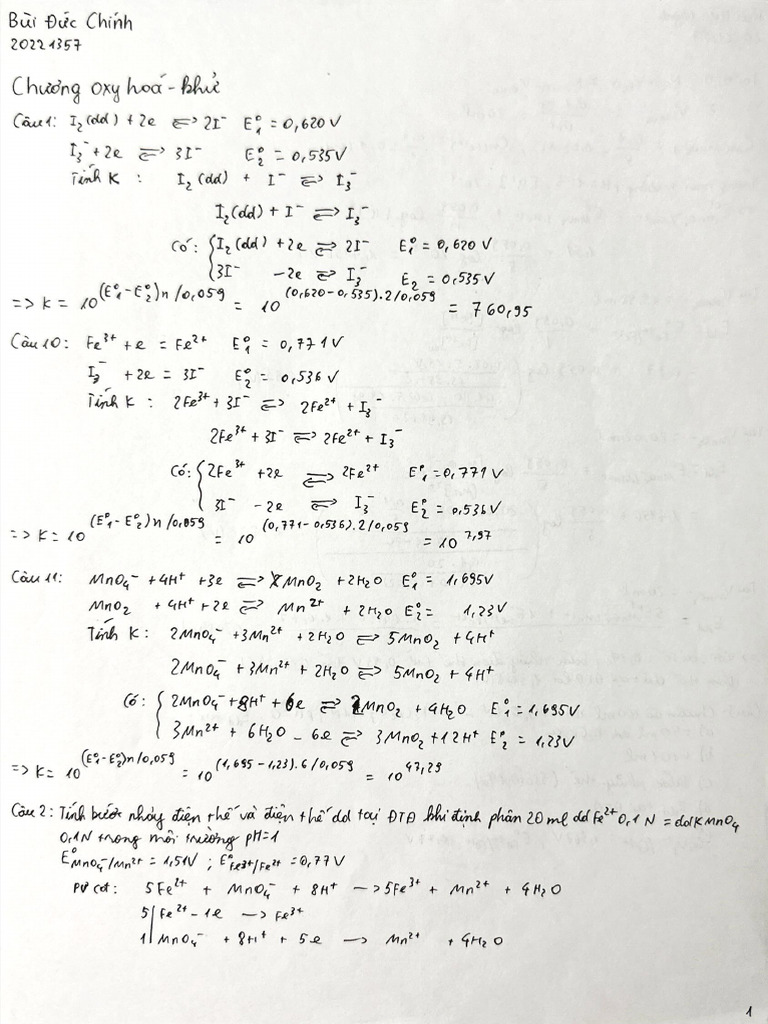 Bùi Đức Chính
20221357
Chương oxy hoá - khử
Câu 1: I₂(dd) + 2e ⇌ 2I⁻ E₁⁰ = 0,620V
I₃⁻ + 2e ⇌ 3I⁻ E₂⁰ = 0,535V
Tính K : I₂(dd) + I⁻ ⇌ I₃⁻
I₂(dd) + I⁻ ⇌ I₃⁻
Có: { I₂(dd) + 2e ⇌ 2I⁻ E₁⁰ = 0,620 V
3I⁻ - 2e ⇌ I₃⁻ E₂ = 0,535V
=> K = 10^(E₁⁰-E₂⁰)n/0,059 = 10^(0,620-0,535).2/0,059 = 760,95
Câu 10: Fe³⁺ + e = Fe²⁺ E₁⁰ = 0,771V
I₃⁻ + 2e = 3I⁻ E₂⁰ = 0,536V
Tính K : 2Fe³⁺ + 3I⁻ ⇌ 2Fe²⁺ + I₃⁻
2Fe³⁺ + 3I⁻ ⇌ 2Fe²⁺ + I₃⁻
Có: { 2Fe³⁺ + 2e ⇌ 2Fe²⁺ E₁⁰ = 0,771V
3I⁻ - 2e ⇌ I₃⁻ E₂⁰ = 0,536V
=> K = 10^(E₁⁰-E₂⁰)n/0,059 = 10^(0,771-0,536).2/0,059 = 10^7,97
Câu 11: MnO₄⁻ + 4H⁺ + 3e ⇌ MnO₂ + 2H₂O E₁⁰ = 1,695V
MnO₂ + 4H⁺ + 2e ⇌ Mn²⁺ + 2H₂O E₂⁰ = 1,23V
Tính K : 2MnO₄⁻ + 3Mn²⁺ + 2H₂O ⇌ 5MnO₂ + 4H⁺
2MnO₄⁻ + 3Mn²⁺ + 2H₂O ⇌ 5MnO₂ + 4H⁺
Có: { 2MnO₄⁻ + 8H⁺ + 6e ⇌ 2MnO₂ + 4H₂O E₁⁰ = 1,695V
3Mn²⁺ + 6H₂O - 6e ⇌ 3MnO₂ + 12H⁺ E₂⁰ = 1,23V
=> K = 10^(E₁⁰-E₂⁰)n/0,059 = 10^(1,695-1,23).6/0,059 = 10^47,29
Câu 2: Tính bước nhảy điện thế và điện thế dd tại ĐTĐ khi định phân 20 ml dd Fe²⁺ 0,1N = dd KMnO₄
0,1N trong môi trường pH=1
E⁰MnO₄⁻/Mn²⁺ = 1,51V ; E⁰Fe³⁺/Fe²⁺ = 0,77V
PƯ cđ: 5Fe²⁺ + MnO₄⁻ + 8H⁺ → 5Fe³⁺ + Mn²⁺ + 4H₂O
5| Fe²⁺ - 1e → Fe³⁺
1| MnO₄⁻ + 8H⁺ + 5e → Mn²⁺ + 4H₂O
1